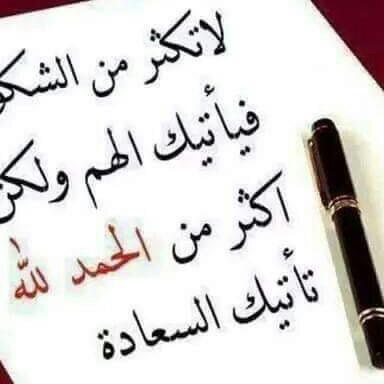 لاتكثر من الشكو
فيأتيك الهم ولكن
اكثر من الحمد لله
تأتيك السعادة